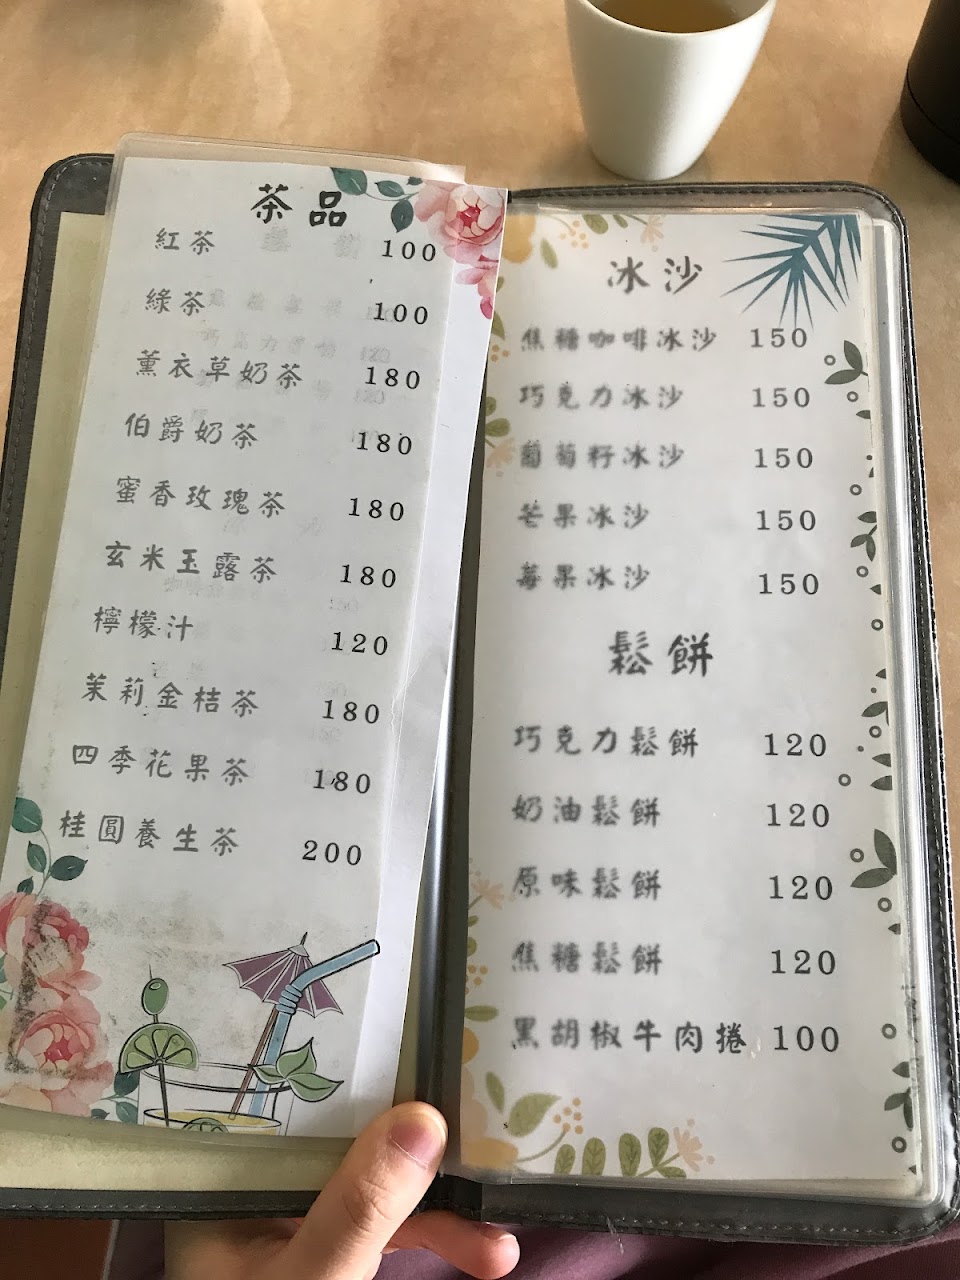 茶品
紅茶 100
綠茶 100
薰衣草奶茶 180
伯爵奶茶 180
蜜香玫瑰茶 180
玄米玉露茶 180
檸檬汁 120
茉莉金桔茶 180
四季花果茶 180
桂圓養生茶 200
冰沙
焦糖咖啡冰沙 150
巧克力冰沙 150
葡萄籽冰沙 150
芒果冰沙 150
莓果冰沙 150
鬆餅
巧克力鬆餅 120
奶油鬆餅 120
原味鬆餅 120
焦糖鬆餅 120
黑胡椒牛肉捲 100